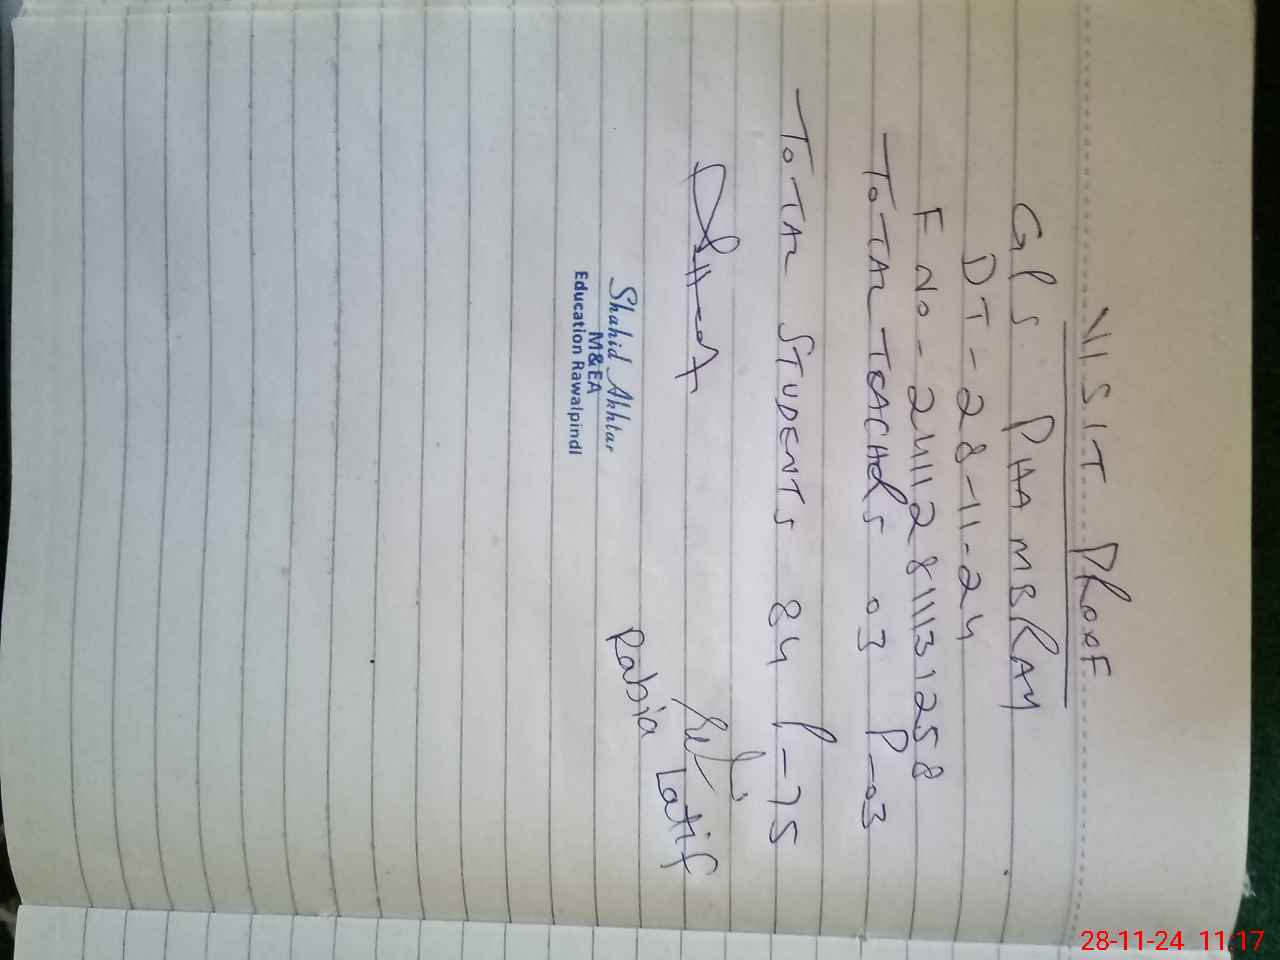 VISIT PROOF
GPS PHAAMBRAY
DT - 28-11-24
F No - 24112811131258
TOTAL TEACHERS 03 P-03
TOTAL STUDENTS 84 P-75
Rabia Latif
Shahid Akhtar
M&EA
Education Rawalpindi
28-11-24 11:17